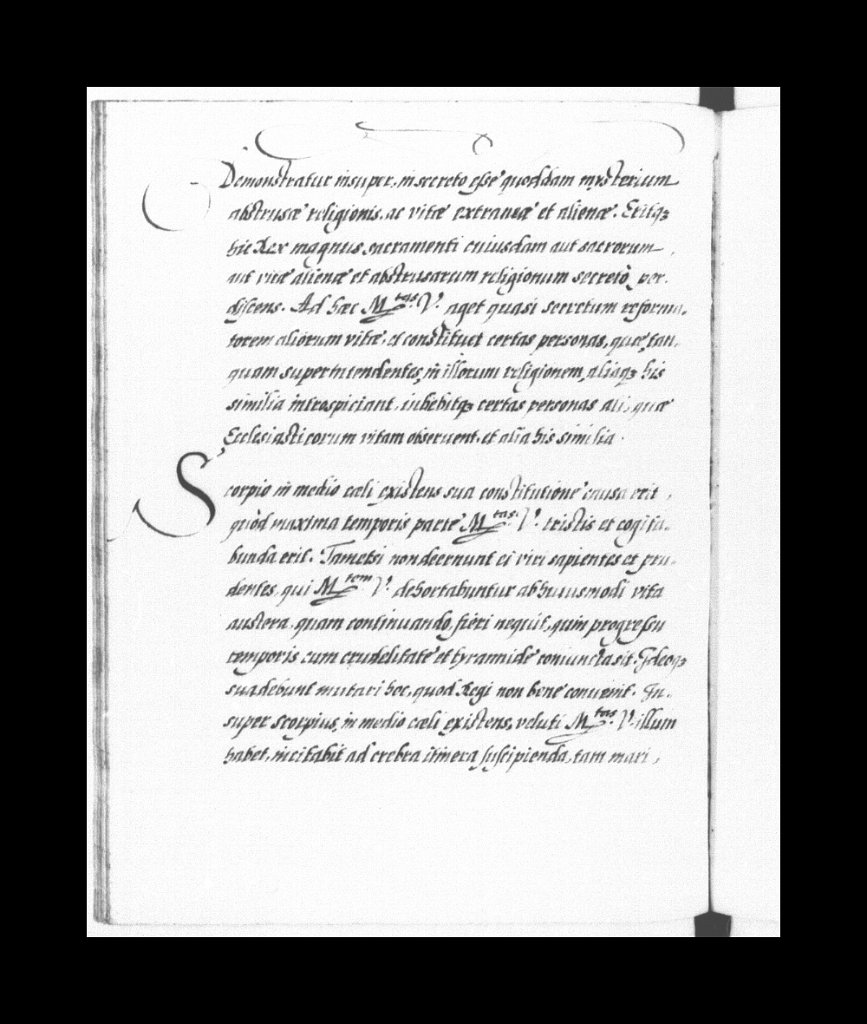 Demonstratur insuper, in secreto esse quoddam mysterium
abstrusae religionis, ac vitae extraneae et alienae. Eritqꝫ
hic Rex magnus sacramenti cuiusdam aut sacrorum
aut vitae alienae et abstrusarum religionum secretò per-
discens. Ad haec M.tas V. aget quasi secretum reforma-
torem aliorum vitae, et constituet certas personas, quae tan-
quam superintendentes, in illorum religionem, aliaqꝫ his
similia introspiciant, iubebitqꝫ certas personas ali, quae
Ecclesiasticorum vitam observent, et alia his similia.
Scorpio in medio caeli existens sua constitutione causa erit,
quòd maxima temporis parte M.tas V. tristis et cogita-
bunda erit. Tametsi non deerunt ei viri sapientes et pru-
dentes, qui M.tem V. dehortabuntur ab huiusmodi vita
austera, quam continuando, fieri nequit, quin progressu
temporis cum crudelitate et tyrannide coniuncta sit. Ideoqꝫ
suadebunt mutari hoc, quod Regi non bene convenit. In-
super scorpius, in medio caeli existens, veluti M.tas V. illum
habet, incitabit ad crebra itinera suscipienda, tam mari,